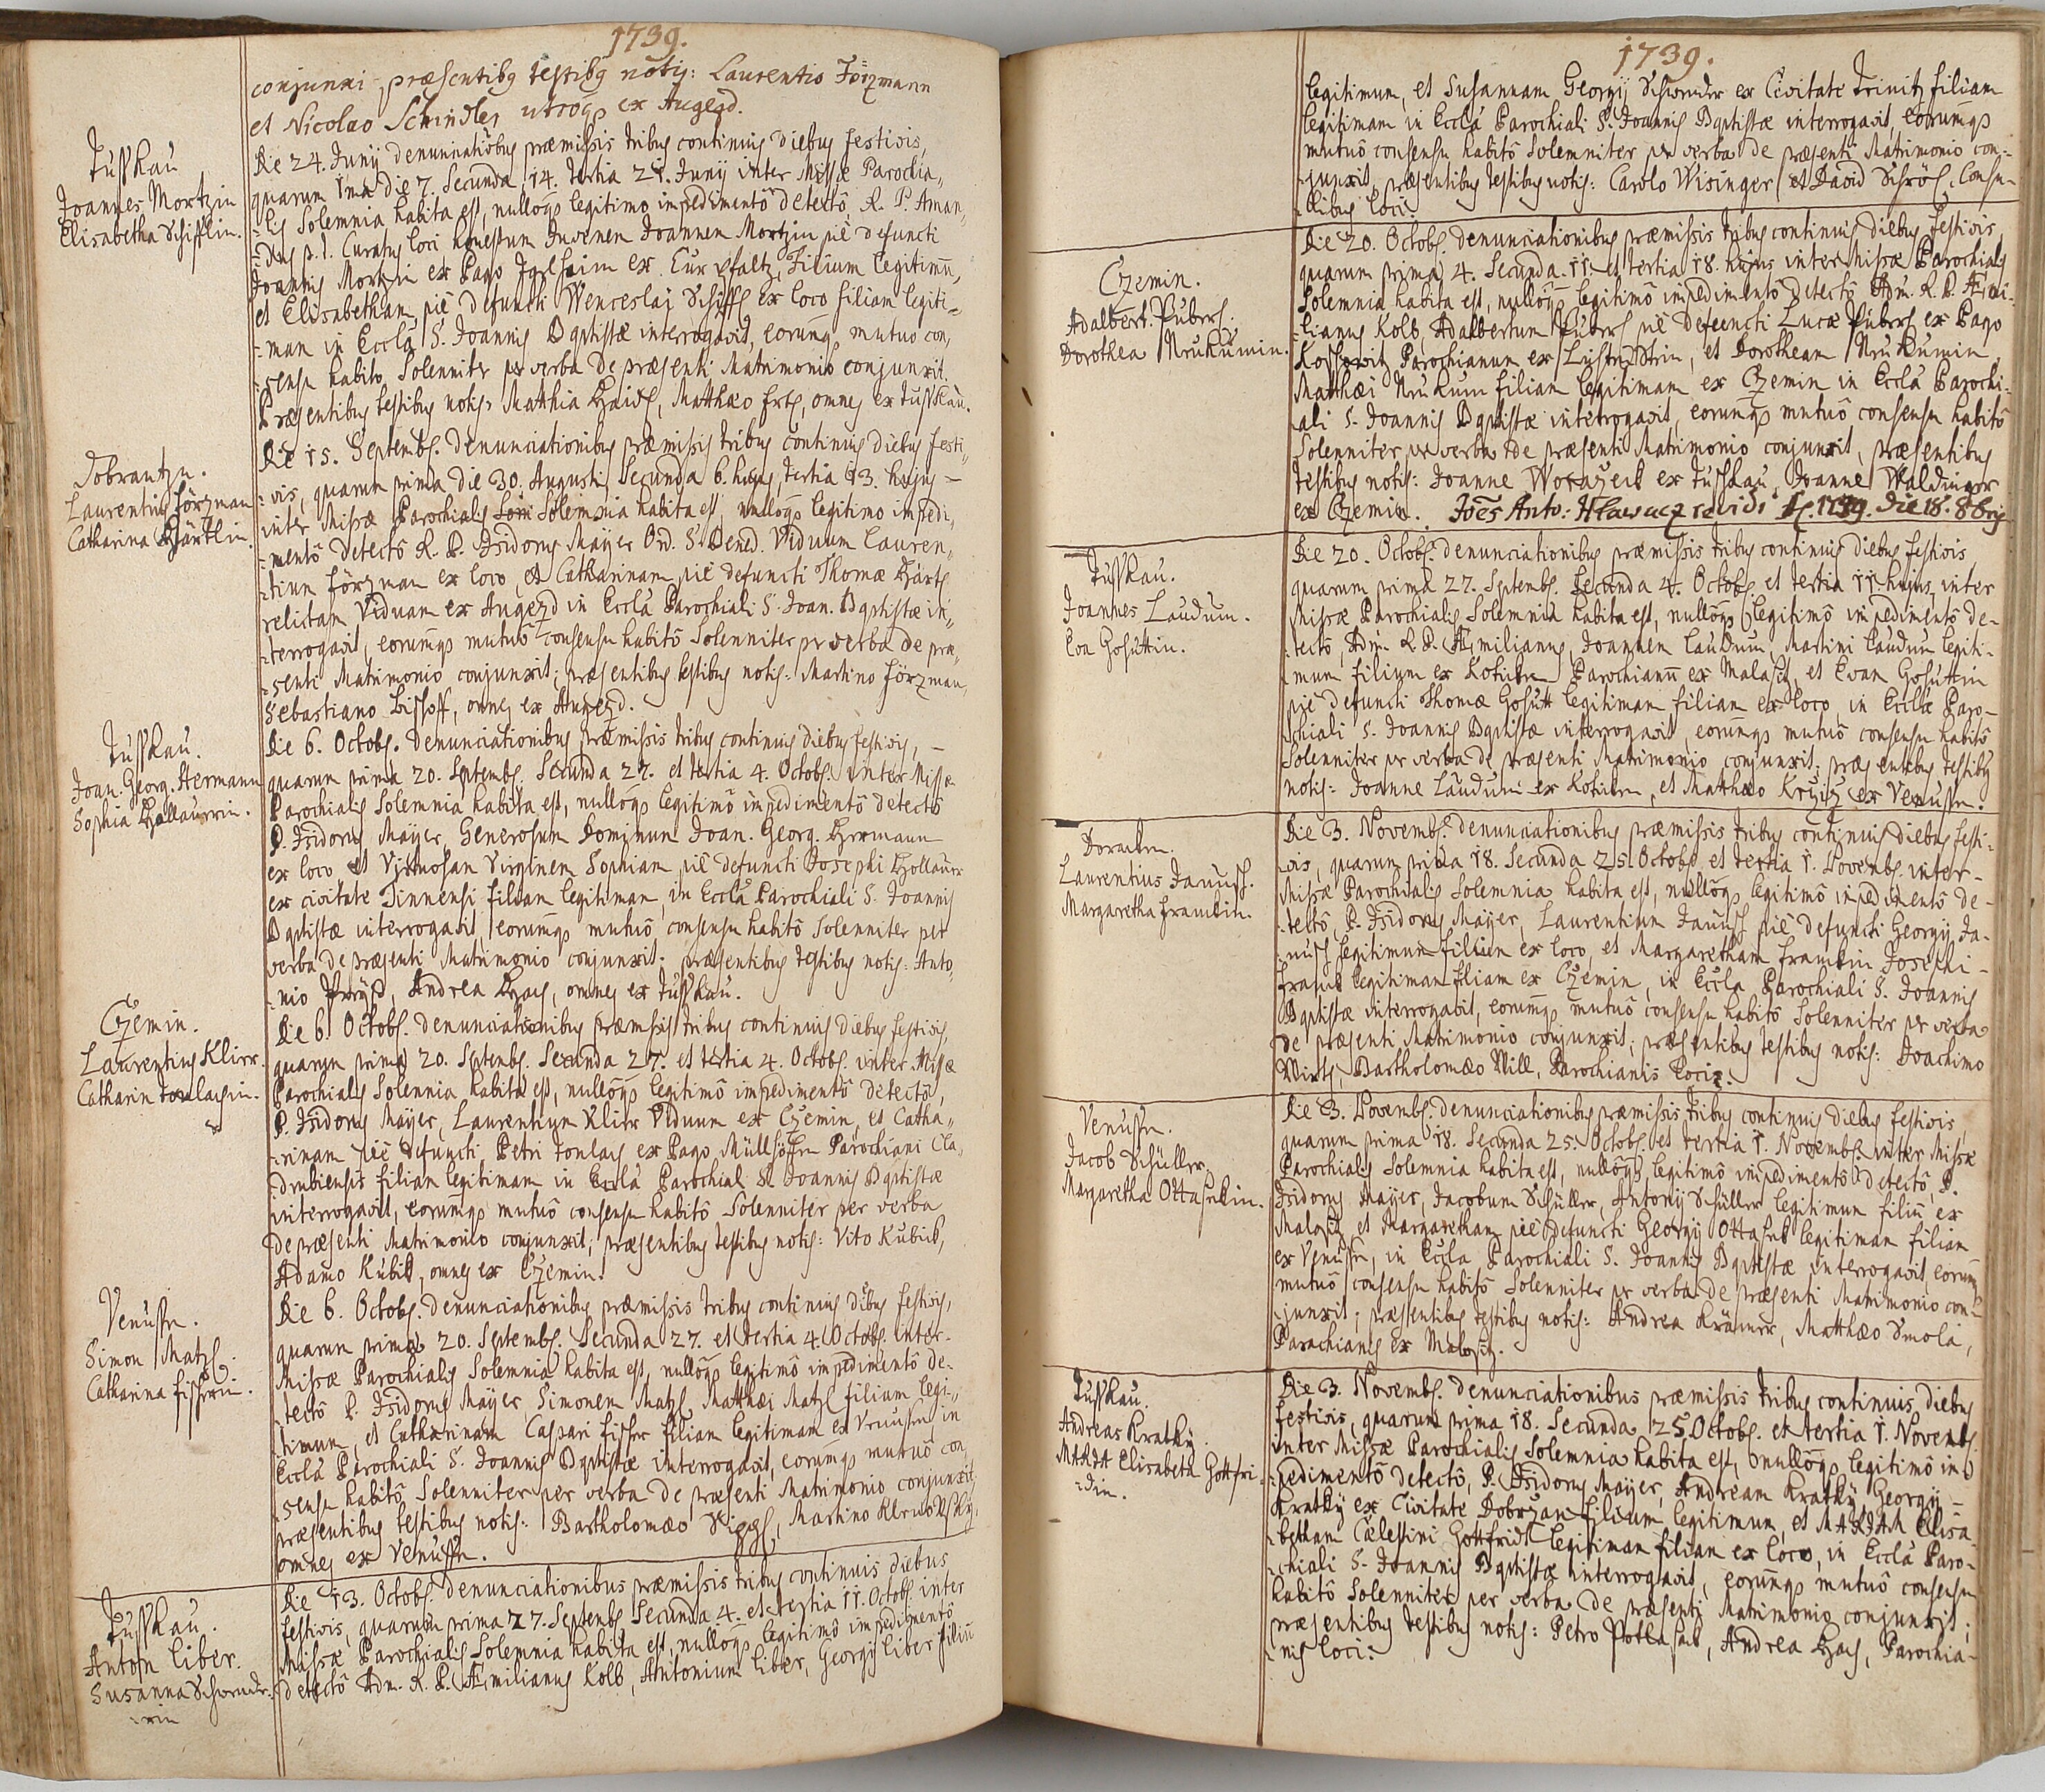 1739.
conjunxi, præsentibg testibg notis: Laurentio Förzmann
et Nicolao Schindler utrogs ex Augezd.
Tusskau
Joannes Mortzin
Elisabetha Schifflin.
Die 24. Junij denunciatiobus præmissis tribus continuis diebus festivis,
quarum 1ma die 7. Secunda 14. tertia 21. Junij inter Missæ Parochia„
„lis Solemnia habita est, nullogs legitimo impedimento detecto R. P. Aman„
„dus p. t. Curatus loci honestum Juvenem Joannem Mortzin piè defuncti
Joannis Mortzin ex Pago Igelheim ex Cur Pfaltz, Filium legitimu,
et Elisabetham piè defuncti Wenceslai Schiffl ex loco filiam legiti„
„mam in Eccla S. Joannis Bqptistæ interrogavit, eorumqs mutuo con„
„sensu habito Solenniter per verba de præsenti Matrimonio conjunxit.
Præsentibus testibus notis: Matthia Haidl, Matthæo Ertl, omnes ex Tusskau.
Dobrantzn.
Laurentius Förzman
Catharina Härtlin.
Die 15. Septembs. denunciationibus præmissis tribus continuis diebus festi„
„vis, quarum prima die 30. Augusti, Secunda 6. hujus, tertia 13. hujus –
inter Missæ Parochialis Solemnia habita est, nullogs legitimo impedi„
„mentô detectô R. P. Isidorus Maÿer Ord. S. Bened. Viduum Lauren„
„tium Förzman ex loco, et Catharinam piè defuncti Thomæ Härtl
relictam Viduam ex Augezd in Eccla Parochiali S. Joan. Bqptistæ in„
„terrogavit, eorumqs mutuô consensu habitô Solenniter pr verba de præ„
„senti Matrimonio conjunxit; præsentibus testibus notis: Martino Förzman,
Sebastiano Bischoff, omnes ex Augezd.
Tusskau.
Joan. Georg. Hermann
Sophia Hollaurin.
Die 6. Octobs. denunciationibus præmissis tribus continuis diebus festivis, –
quarum prima 20. Septembs. Secunda 27. et tertia 4. Octobs. inter Missæ
Parochialis Solemnia habita est, nullogs legitimô impedimentô detectô
P. Isidorus Maÿer, Generosum Dominum Joan. Georg. Hermann
ex loco et Virtuosam Virginem Sophiam piè defuncti Josephi Hollaur
ex civitate Tinnensi filiam legitimam, in Eccla Parochiali S. Joannis
Bqptistæ interrogavit, eorumqs mutuô consensu habitô Solenniter per
verba de præsenti Matrimonio conjunxit. præsentibus testibus notis: Anto„
„nio, Andrea Hays, omnes ex Tusskau.
Czemin.
Laurentius Klier.
Catharin Tonlachin.
Die 6. Octobs. denunciationibus præmissis tribus continuis diebus festivis,
quarum prima 20. Septembs. Secunda 27. et tertia 4. Octobs. inter Missæ
Parochialis Solennia habita est, nullogs legitimô impedimentô detectô,
P. Isidorus Maÿer, Laurentium Klier Viduum ex Czemin, et Catha„
„rinam piè defuncti Petri Tonlach ex Pago Müllhöffen Parochiani Cla„
„drubiensis filiam legitimam in Eccla Parochial S. Joannis Bqptistæ
interrogavit, eorumqs mutuô consensu habitô Solenniter per verba
de præsenti Matrimonio conjunxit; præsentibus testibus notis: Vito Kubik,
Adamo Kubik, omnes ex Czemin.
Venussn.
Simon Matzl.
Catharina Fischerin.
Die 6. Octobs. denunciationibus præmissis tribus continuis dieus festivis,
quarum prima 20. Septembs. Secunda 27. et tertia 4. Octobs. inter
Missæ Parochialis Solemnia habita est, nullogs legitimô impedimentô de„
„tectô P. Isidorus Maÿer Simonem Matzl, Matthæi Matzl filium legi„
„timum, et Catharinam Caspari Fischer filiam legitimam ex Venussn in
Eccla Parochiali S. Joannis Bqptistæ interrogavit, eorumqs mutuô con„
„sensu habitô Solenniter per verba de præsenti Matrimonio conjunxit,
præsentibus testibus notis: Bartholomæo, Martino
omnes ex Venussn.
Tusskau.
Anton Liber.
Susanna Schwende„
„rin
Die 13. Octobs. denunciationibus præmissis tribus continuis diebus
festivis, quarum prima 27. Septembs. Secunda 4. et tertia 11. Octobs. inter
Missæ Parochialis Solemnia habita est, nullogs legitimô impedimentô
detectô Adm. R. P. Æmilianus Kolb, Antonium Liber, Georgij Liber filiu
1739.
legitimum, et Susannam Georgij Schwender ex Civitate Trinitz filiam
legitimam in Eccla Parochiali S. Joannis Bqptistæ interrogavit, eorumqs
mutuô consensu habitô Solemniter pr verba de præsenti Matrimonio con„
„junxit, præsentibus testibus notis: Carolo Wisinger, et David Schröl, Consu„
„libus loci.
Czemin.
Adalbert. Puberl.
Dorothea Mrukumin.
Die 20. Octobs. denunciationibus præmissis tribus continuis diebus festivis,
quarum prima 4. Secunda 11. et tertia 18. hujus inter Missæ Parochialis
Solemnia habita est, nullogs legitimô impedimentô detectô Adm. R. P. Æmi„
„lianus Kolb, Adalbertum Puberl piè defuncti Lucæ Puberl ex Pago
Parochianum ex, et Dorotheam Mrukumin
Matthæi Mrukum filiam legitimam ex Czemin in Eccla Parochi„
„ali S. Joannis Bqptistæ interrogavit, eorumqs mutuô consensu habitô
Solenniter pr verba de præsenti Matrimonio conjunxit, præsentibus
testibus notis: Joanne Woražeck ex Tusskau, Joanne Waldinger
ex Czemin. Joes Anto: Hlawacz revidi A. 1739. die 18. 8bris
Tusskau.
Joannes Laudum.
Eva Gohuttin.
Die 20. Octobs. denunciationibus præmissis tribus continuis diebus festivis
quarum prima 27. Septembs. Secunda 4. Octobs. et tertia 11. hujus inter
Missæ Parochialis Solemnia habita est, nullogs legitimô impedimentô de–
„tectô, Adm. R. P. Æmilianus, Joannem Laudum, Martini Laudum legiti–
„mum filium ex Parochianu ex Malasitz, et Evam Gohuttin
piè defuncti Thomæ Gohutt legitimam filiam ex loco, in Eccla Paro–
„chiali S. Joannis Bqptistæ interrogavit, eorumqs mutuô consensu habitô
Solenniter pr verba de præsenti Matrimonio conjunxit; præsentibus testibus
notis: Joanne Laudum ex, et Matthæo ex Venussn.
Laurentius Janusch.
Margaretha Frankin.
Die 3. Novembs. denunciationibus præmissis tribus continuis diebus festi–
„vis, quarum prima 18. Secunda 25. Octobs. et tertia 1. Novembs. inter –
Missæ Parochialis Solemnia habita est, nullogs legitimô impedimentô de–
„tectô, P. Isidorus Maÿer, Laurentium Janusch piè defuncti Georgij Ja–
„nusch legitimum filium ex loco, et Margaretham Frankin Josephi –
Frank legitimam filiam ex Czemin, in Eccla Parochiali S. Joannis
Bqptistæ interrogavit, eorumqs mutuô consensu habitô Solenniter pr verba
de præsenti Matrimonio conjunxit; præsentibus testibus notis: Joachimo
Wirth, Bartholomæo Will, Parochianis loci.
Venussn.
Jacob Schüller
Margaretha Ottaschkin.
Die 3. Novembs. denunciationibus præmissis tribus continuis diebus festivis,
quarum prima 18. Secunda 25. Octobs. et tertia 1. Novembs. inter Missæ
Parochialis Solemnia habita est, nullogs legitimô impedimentô detectô, P.
Isidorus Maÿer, Jacobum Schüller, Antonij Schüller legitimum filiu ex
Malositz et Margaretham piè defuncti Georgij Ottaschek legitimam filiam
ex Venussn, in Eccla Parochiali S. Joannis Bqptistæ interrogavit, eorumqs
mutuô consensu habitô Solenniter pr verba de præsenti Matrimonio con–
„junxit; præsentibus testibus notis: Andrea Krämer, Matthæo Smola,
Parochianis ex Malositz.
Tusskau.
Andreas Kratkÿ.
MARIA Elisabeth Gottfri„
„din.
Die 3. Novembs. denunciationibus præmissis tribus continuis diebus
festivis, quarum prima 18. Secunda 25 Octobs. et tertia 1. Novembs.
inter Missæ Parochialis Solemnia habita est, nullogs legitimô im–
„pedimentô detectô, P. Isidorus Maÿer, Andream Kratkÿ, Georgij –
Kratkÿ ex Civitate Dobrzan filium legitimum, et MARIAM Elisa–
„betham Cælestini Gottfridt legitimam filiam ex loco, in Eccla Paro–
„chiali S. Joannis Bqptistæ interrogavit, eorumqs mutuô consensu
habitô Solenniter per verba de præsenti Matrimonio conjunxit;
præsentibus testibus notis: Petro Potlaschak, Andrea Hays, Parochia–
„nis loci.